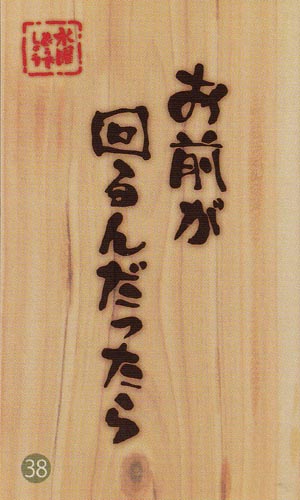 お前が
回るんだったら
水曜
どうでしょう
38